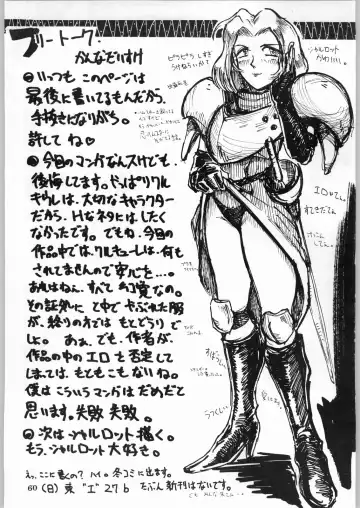 フリートーク・
かんなぞいすけ
◎いつも このページは
最後に書いてるもんだから、
手抜きになりがち。
許してね♡
◎今回のマンガなんスけども、
後悔してます。やっぱりクル
ギルは、大切なキャラクター
だから、Hなネタにはしたく
なかったです。でもね、今回の
作品中では、クルキューレは、何も
されませんので安心を…。
あれはねぇ、すべて幻覚なの。
その証拠に と中でやぶれた服
が、終りの方では もとどうりで
しょ。まぁ、でも、作者が、
作品の中のエロを否定して
しまっては、もともこもないね。
僕はこういうマンガはだめだと
思います。失敗失敗。
◎次はシャルロット描く。
もう、シャルロット大好き。
えっ、ここに書くの? M。冬コミに出ます。
60 (日) 東 "エ" 27 b たぶん 新刊はないです。
シャルロット
かわいい。
ピラピラしすぎ
エロいでん。
すてきでん。
うつくしい